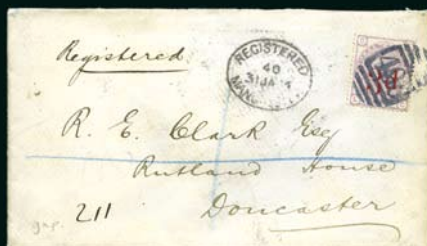 Registered
REGISTERED
40
31 JA 84
MANCHESTER
3d
R. E. Clark Esq
Rutland House
211
Doncaster